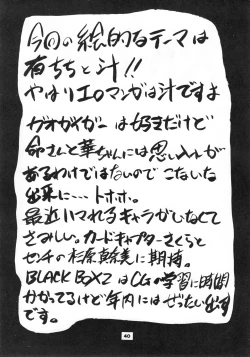 今回の絵的なテーマは
有ちちと汁!!
やはりエロマンガは汁ですよ
ガオガイガーは好きだけど
命さんと華ちゃんには思い入れが
あるわけではないのでこなした
出来に…トホホ。
最近ハマれるキャラがいなくて
さみしい。カードキャプターさくらと
センチの杉原真奈美に期待。
BLACK BOX2はCGの学習に時間
かかってるけど年内にはぜったい出す
です。
40